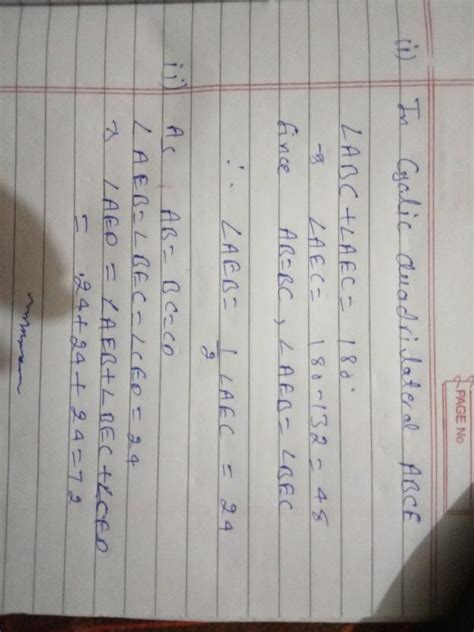 PAGE No
(i) In Cyclic Quadrilateral ABCE
∠ABC+∠AEC= 180°
→ ∠AEC= 180-132 = 48
Since AB=BC, ∠AEB=∠BEC
∴ ∠AEB= 1/2 ∠AEC = 24
ii) As AB=BC=CD
∠AEB=∠BEC=∠CED=24
→ ∠AED = ∠AEB+∠BEC+∠CED
= 24+24+24=72